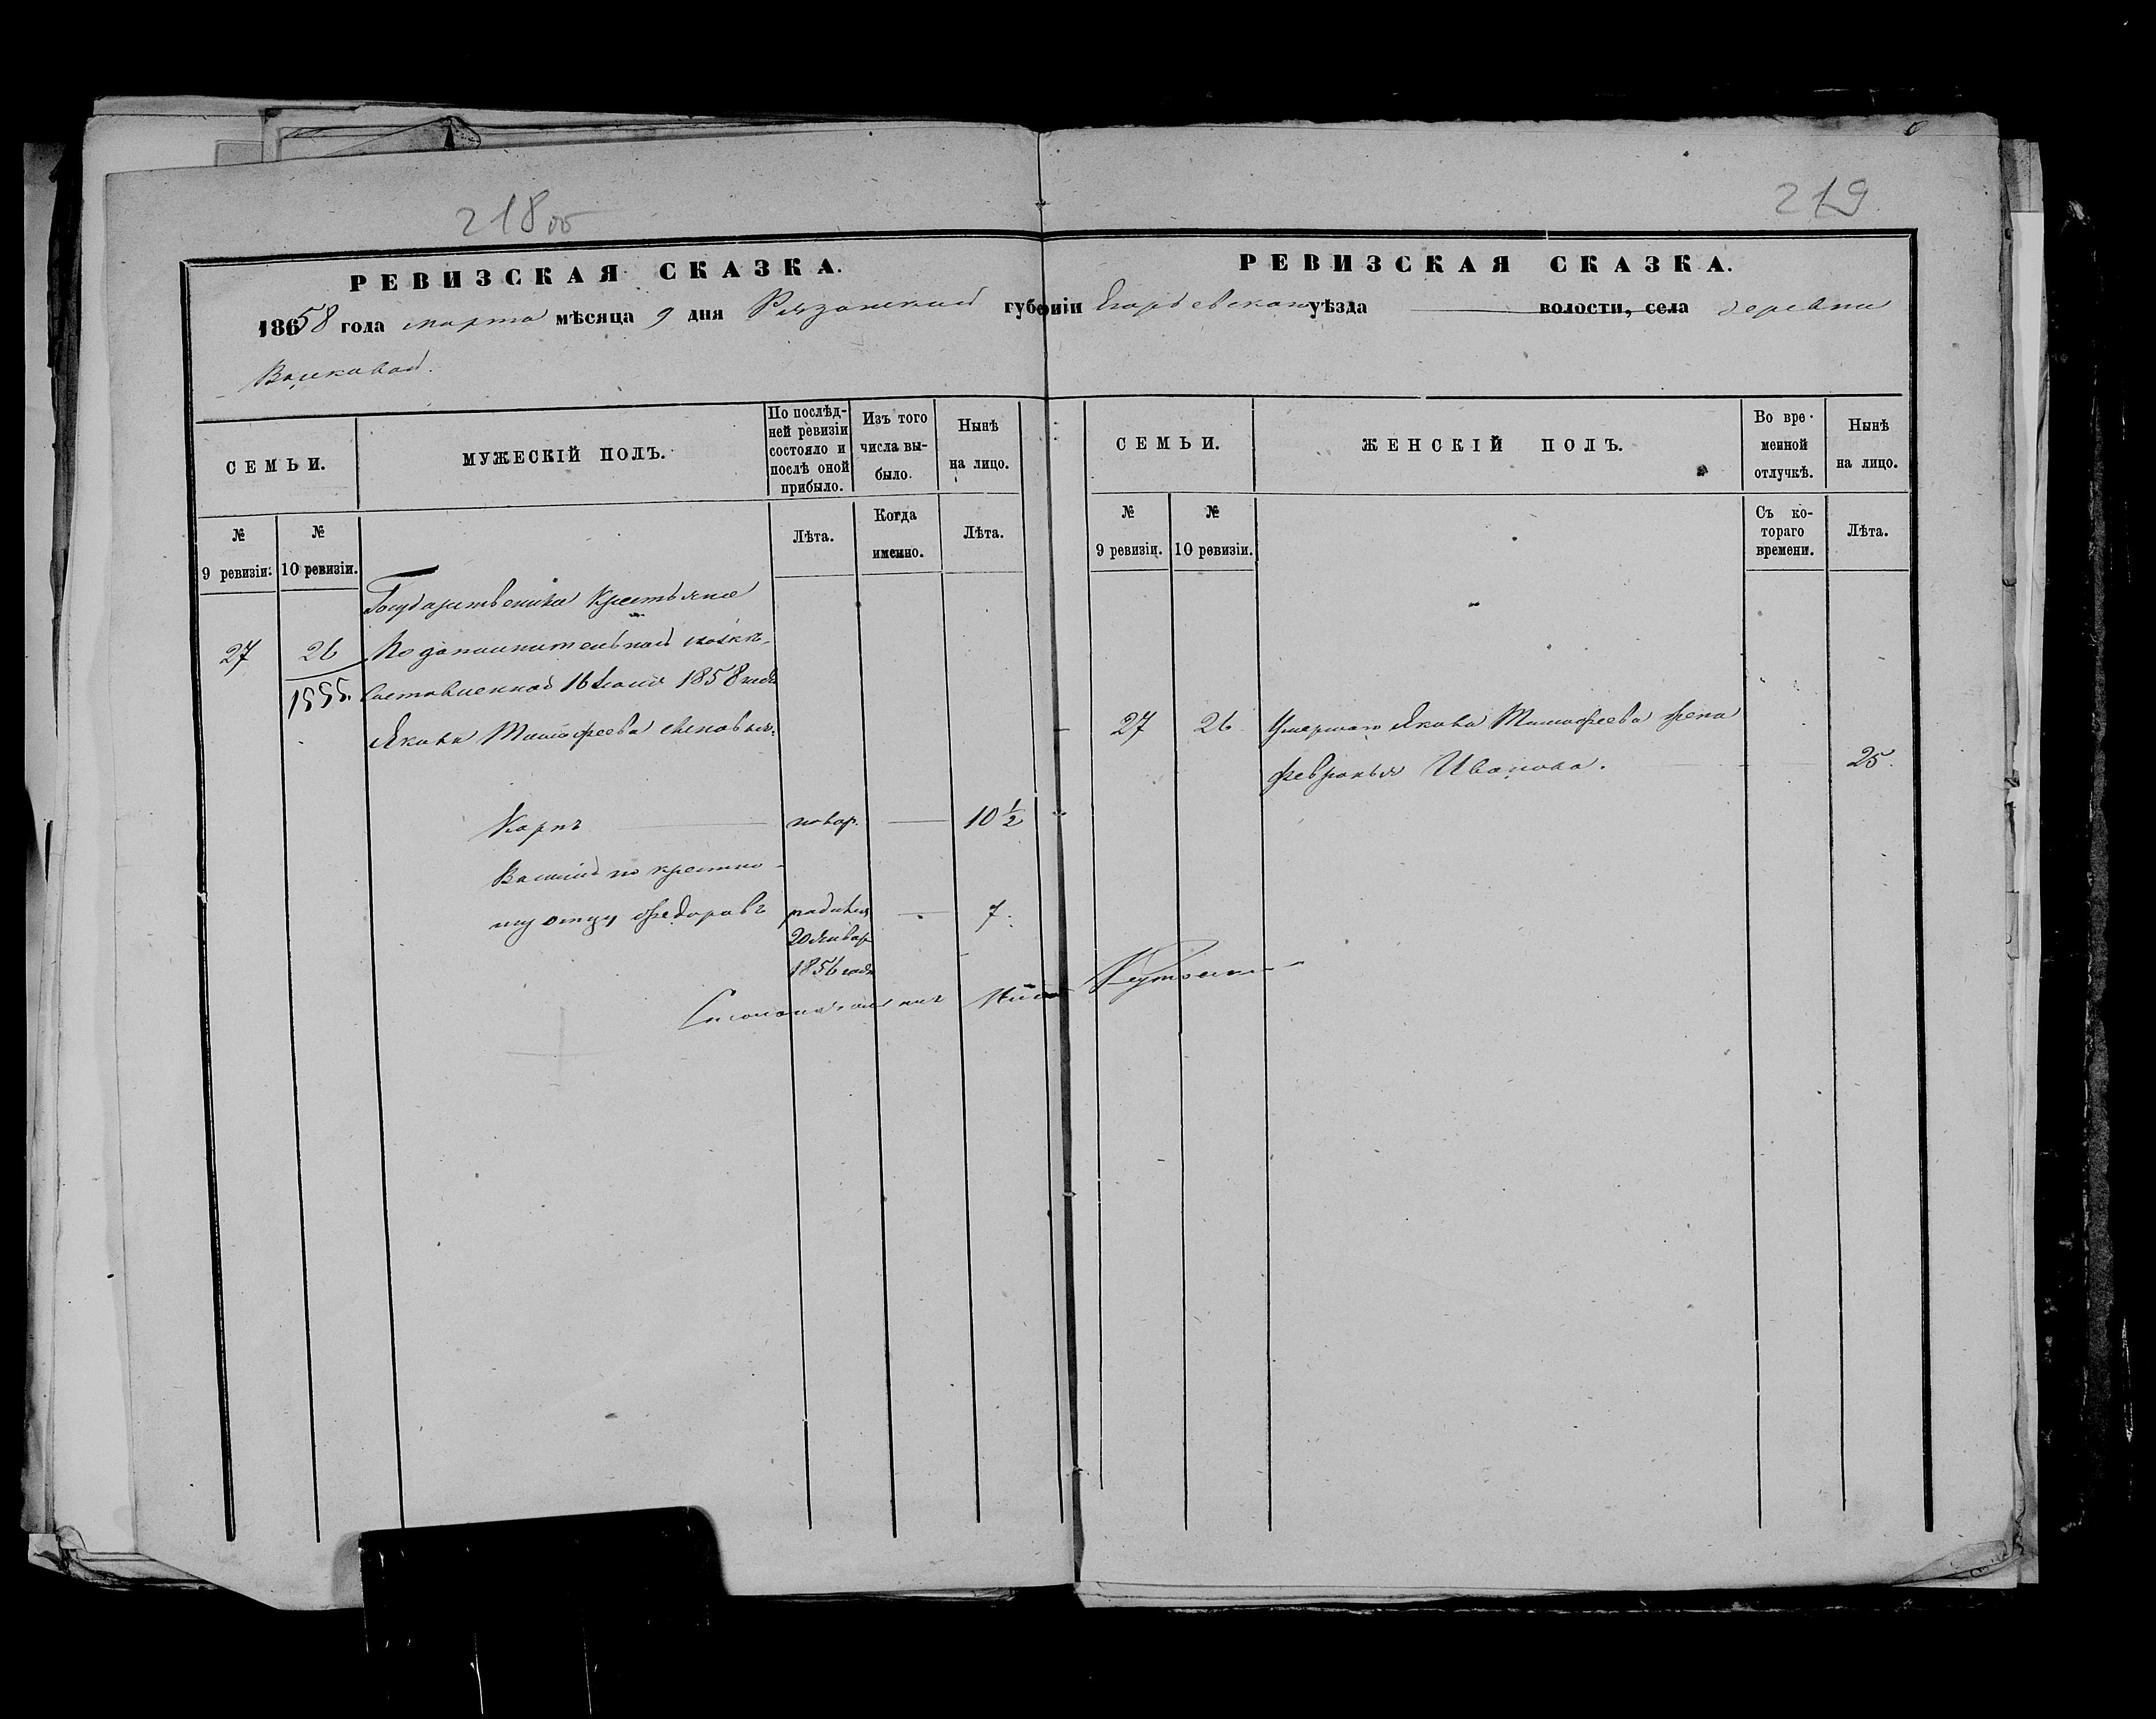 218об
219
РЕВИЗСКАЯ СКАЗКА.
РЕВИЗСКАЯ СКАЗКА.
18658 года марта мѣсяца 9 дня Рязанской губерніи Егорьевскаго уѣзда волости, села деревни
СЕМЬИ.
МУЖЕСКІЙ ПОЛЪ.
По послѣд-
ней ревизіи
состояло и
послѣ оной
прибыло.
Изъ того
числа вы-
было.
Нынѣ
на лицо.
№
9 ревизіи.
№
10 ревизіи.
Лѣта.
Когда
именно.
Лѣта.
Государственные Крестьяне
27 26 По дополнительной сказкѣ
1555. Составленной 16 Іюня 1858 года
Якова Тимофеева сыновья:
Карпъ новор. 10 ½
Василій по крестно-
му отцу Федоровъ родился 7.
20 Январ
1856 года
СЕМЬИ.
ЖЕНСКІЙ ПОЛЪ.
Во вре-
менной
отлучкѣ.
Нынѣ
на лицо.
№
9 ревизіи.
№
10 ревизіи.
Съ ко-
тораго
времени.
Лѣта.
27 26 Умершаго Якова Тимофеева жена
Февронья Иванова. 25.